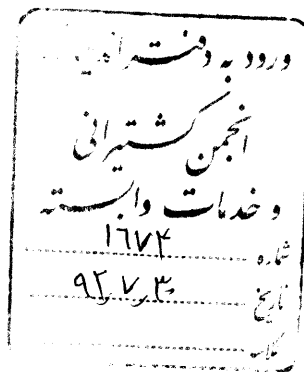 ورود به دفتر اندیکاتور
انجمن کشتیرانی
و خدمات وابسته
شماره ۱۶۷۴
تاریخ ۹۲,۷,۳۰